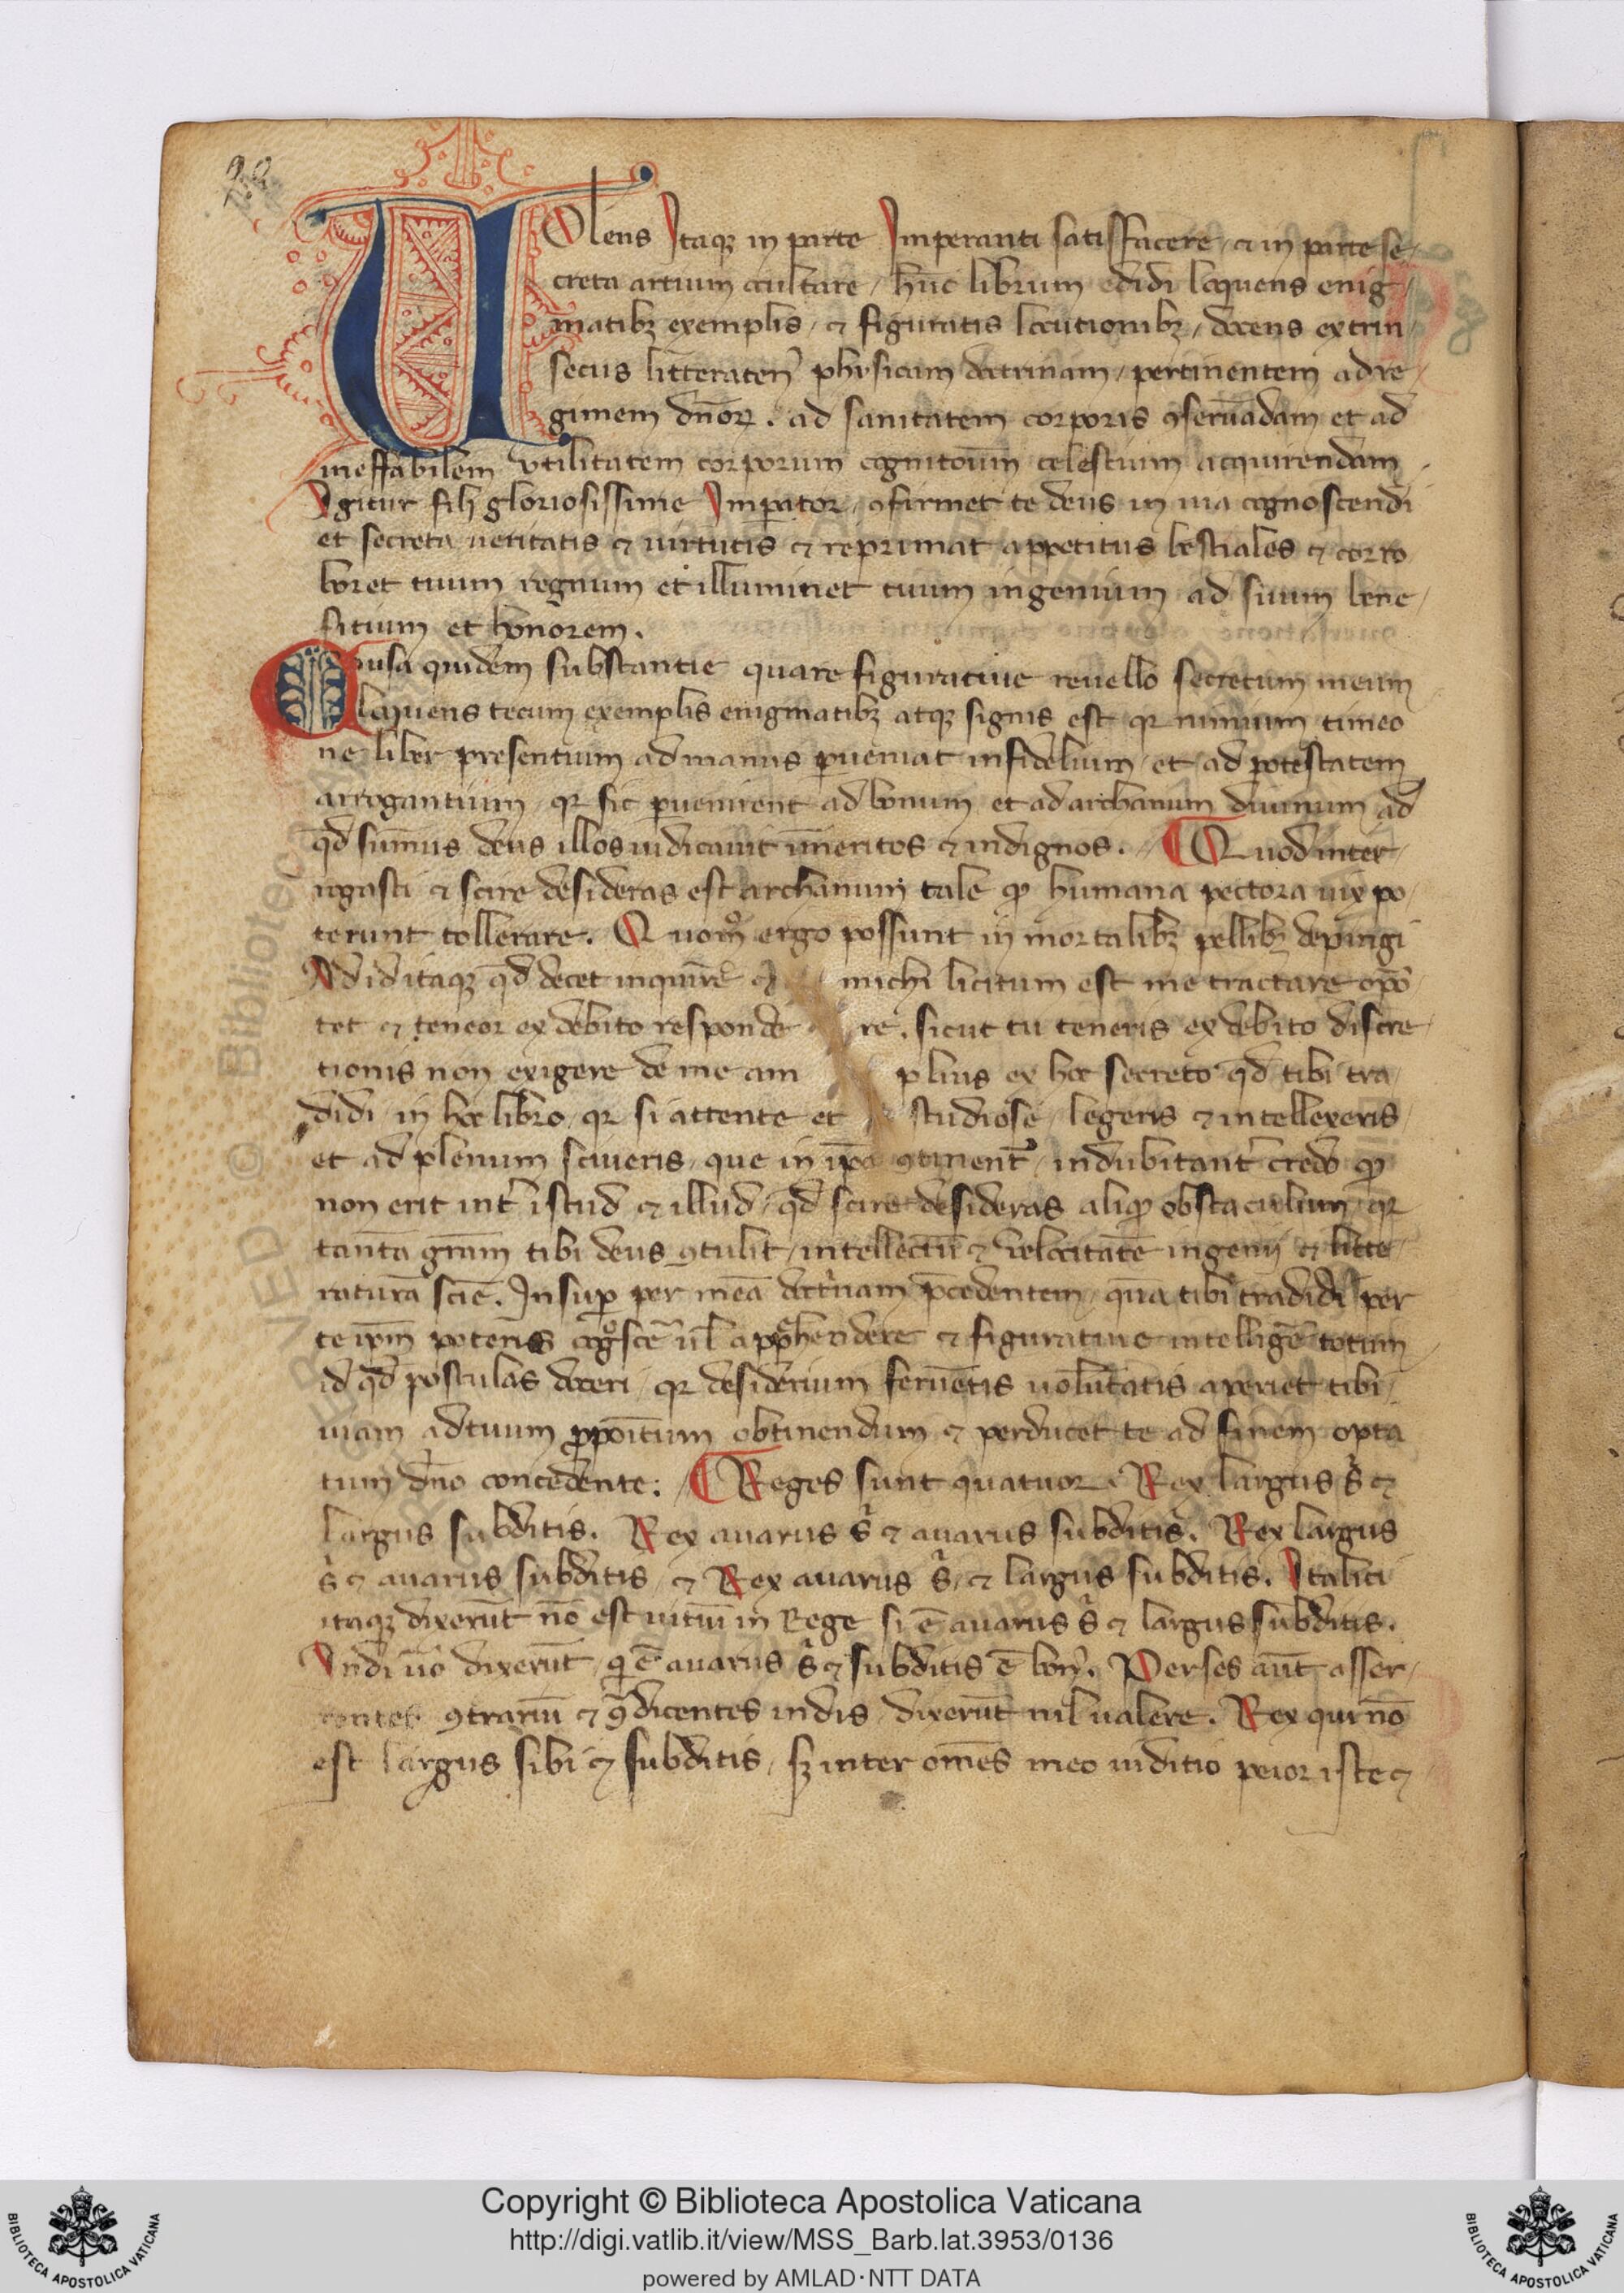 Volens Itaqꝫ in parte Imperanti satisfacere / ⁊ in parte se/
creta artium ocultare / hūc librum edidi loquens enig/
matibꝫ exemplis / ⁊ figuratis locutionibꝫ / docens extrin/
secus litteraten̄ phisicam doctrinam / pertinentem ad re/
gimem dn̄oꝝ . ad sanitatem corporis ꝯseruādam et ad
ineffabilem vtilitatem corporum cognitoū celestium acquirendam
Igitur fili gloriosissime Imꝑator / ꝯfirmet te deus in uia cognoscendi
et secreta ueritatis ⁊ uirtutis ⁊ reprimat appetitus bestiales ⁊ corro
boret tuum regnum et illuminet tuum ingenium ad suum bene/
fitium et honorem .
Causa quidem substantie quare figuratiue reuello secretum meum
loquens tecum exemplis enigmatibꝫ atqꝫ signis est qꝛ nimium timeo
ne liber presentium ad manus ꝑueniat infidelium / et ad potestatem
arrogantium / qꝛ sic ꝑuenirent ad bonum et ad archanum diuinum ad
qd̄ sum̄us deus illos iudicauit im̄eritos ⁊ indignos . Quod inter/
rogasti ⁊ scire desideras est archanum tale ꝙ humana pectora uix po/
terunt tollerare . Quomo͛ ergo possunt in mortalibꝫ pellibꝫ depingi
Ad id itaqꝫ qd̄ decet inquirē ⁊ michi licitum est me tractare opo͛
tet ⁊ teneor ex debito responde re . sicut tu teneris ex debito discre
tionis non exigere de me am plius ex hoc secreto qd̄ tibi tra/
didi in hoc libro / qꝛ si attente et studiose / legeris ⁊ intellexeris
et ad plenum sciueris / que in ip̄o ꝯtinent᷑ / indubitant᷑ credo ꝙ
non erit int᷑ istud ⁊ illud / qd̄ scire desideras aliqꝫ obstaculum / qꝛ
tantā grām tibi deus ꝯtulit / intellectū ⁊ velocitatē ingenij ⁊ litte/
raturā sciē . Insuꝑ per meā doct᷑nam p̄cedentem / quā tibi tradidi per
te ip̄m poteris cog͛scē ul̓ app̄hendere ⁊ figuratiue intelligē totum
id qd̄ postulas doceri / qꝛ desiderium feruētis uolūtatis aperiet tibi/
uiam ad tuum ꝓpoītum obtinendum ⁊ perducet te ad finem opta
tum dn̄o concedente : Reges sunt quatuor . Rex largus s᷑ ⁊
largus subditis . Rex auarus s᷑ ⁊ auarus subditis . Rex largus
s᷑ ⁊ auarus subditis / ⁊ Rex auarus s᷑ / ⁊ largus subditis . Italici
itaqꝫ dixerūt nō est uitiū in Rege si ē auarus s᷑ ⁊ largus subditis .
Indi uō dixerūt / qi ē auarus s᷑ ⁊ subditis ē bon᷑ . Perses aūt asser/
rentes ꝯtrariū ⁊ ꝯ͛dicentes indis dixerūt nil ualere . Rex qui nō
est largus sibi ⁊ subditis / sꝫ inter om̄es meo iuditio peior iste ⁊
Copyright © Biblioteca Apostolica Vaticana
http://digi.vatlib.it/view/MSS_Barb.lat.3953/0136
powered by AMLAD·NTT DATA
BIBLIOTECA APOSTOLICA VATICANA
BIBLIOTECA APOSTOLICA VATICANA